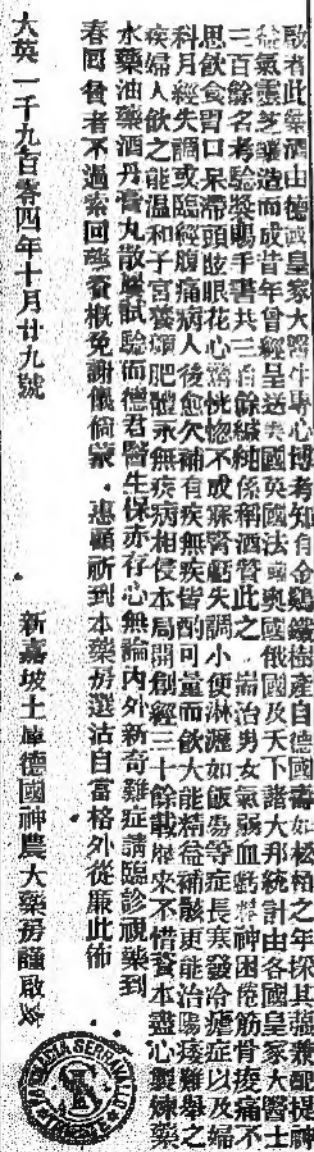 啟者此藥酒由德國皇家大醫生專心博考知有金鷄鐵樹產自德國壽如松柏之年採其蘊兼配提神
益氣靈芝釀造而成昔年曾經呈送美國英國法國奧國俄國及天下諸大邦統計由各國皇家大醫士
三百餘名考驗獎賜手書共三百餘緘純係稱酒管此之 耑治男女氣弱血虧精神困倦筋骨疫痛不
思飲食胃口呆滯頭眩眼花心驚恍惚不成寐腎虧失調小便淋瀝如飯湯等症長寒發冷瘧症以及婦
科月經失調或臨經腹痛病人後愈欠補有疾無疾皆酌可量而飲大能精益補骸更能治陽痿難舉之
疾婦人飲之能温和子宮養顏肥體永無疾病相侵本局開創經三十餘載歷來不惜資本盡心製煉藥
水藥油藥酒丹膏丸散屢試驗而德君醫生保赤存心無論內外新奇難症請臨診視藥到
春回貧者不過索回藥資概免謝儀倘蒙 惠顧祈到本藥房選沽自當格外從廉此佈
大英一千九百零四年十月廿九號
新嘉坡土庫德國神農大藥房謹啟
SERRAVALLO